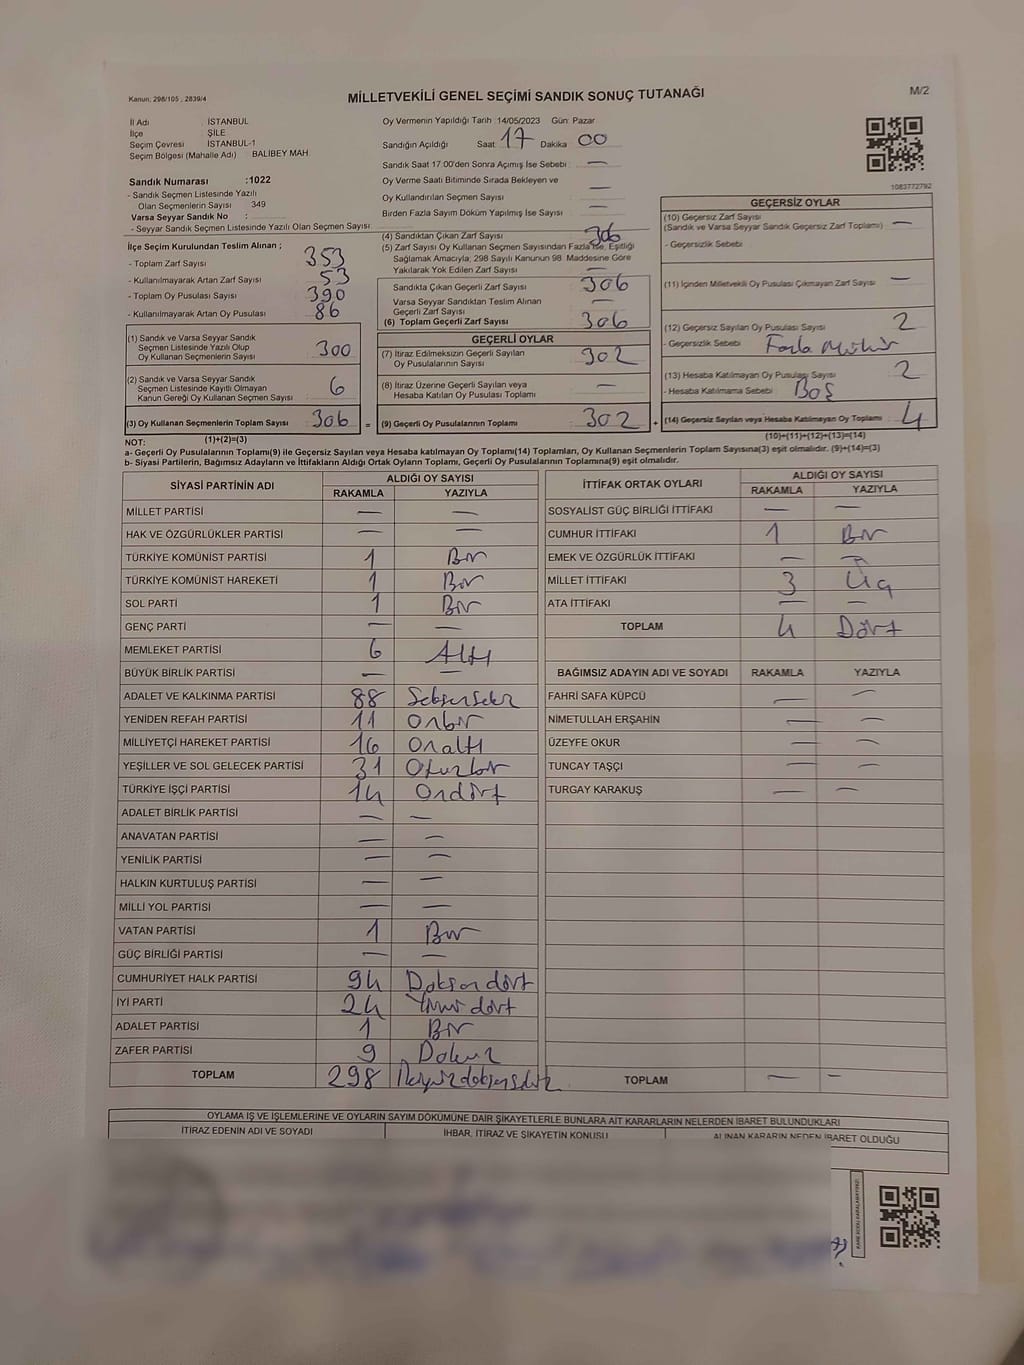 Kanun; 298/105 ; 2839/4
MİLLETVEKİLİ GENEL SEÇİMİ SANDIK SONUÇ TUTANAĞI
M/2
İl Adı : İSTANBUL
İlçe : ŞİLE
Seçim Çevresi : İSTANBUL-1
Seçim Bölgesi (Mahalle Adı) : BALİBEY MAH.
Sandık Numarası :1022
- Sandık Seçmen Listesinde Yazılı
Olan Seçmenlerin Sayısı : 349
Varsa Seyyar Sandık No :
- Seyyar Sandık Seçmen Listesinde Yazılı Olan Seçmen Sayısı :
Oy Vermenin Yapıldığı Tarih :14/05/2023 Gün: Pazar
Sandığın Açıldığı Saat 17 Dakika 00
Sandık Saat 17.00'den Sonra Açımış İse Sebebi : —
Oy Verme Saati Bitiminde Sırada Bekleyen ve
Oy Kullandırılan Seçmen Sayısı : —
Birden Fazla Sayım Döküm Yapılmış İse Sayısı : —
1083772792
İlçe Seçim Kurulundan Teslim Alınan ;
- Toplam Zarf Sayısı : 353
- Kullanılmayarak Artan Zarf Sayısı : 53
- Toplam Oy Pusulası Sayısı : 390
- Kullanılmayarak Artan Oy Pusulası : 86
(1) Sandık ve Varsa Seyyar Sandık
Seçmen Listesinde Yazılı Olup
Oy Kullanan Seçmenlerin Sayısı : 300
(2) Sandık ve Varsa Seyyar Sandık
Seçmen Listesinde Kayıtlı Olmayan
Kanun Gereği Oy Kullanan Seçmen Sayısı : 6
(3) Oy Kullanan Seçmenlerin Toplam Sayısı : 306 =
(1)+(2)=(3)
(4) Sandıktan Çıkan Zarf Sayısı : 306
(5) Zarf Sayısı Oy Kullanan Seçmen Sayısından Fazla İse, Eşitliği
Sağlamak Amacıyla, 298 Sayılı Kanunun 98. Maddesine Göre
Yakılarak Yok Edilen Zarf Sayısı : —
Sandıkta Çıkan Geçerli Zarf Sayısı : 306
Varsa Seyyar Sandıktan Teslim Alınan
Geçerli Zarf Sayısı : —
(6) Toplam Geçerli Zarf Sayısı : 306
GEÇERLİ OYLAR
(7) İtiraz Edilmeksizin Geçerli Sayılan
Oy Pusulalarının Sayısı : 302
(8) İtiraz Üzerine Geçerli Sayılan veya
Hesaba Katılan Oy Pusulası Toplamı : —
(9) Geçerli Oy Pusulalarının Toplamı : 302 +
GEÇERSİZ OYLAR
(10) Geçersiz Zarf Sayısı
(Sandık ve Varsa Seyyar Sandık Geçersiz Zarf Toplamı) : —
- Geçersizlik Sebebi :
(11) İçinden Milletvekili Oy Pusulası Çıkmayan Zarf Sayısı : —
(12) Geçersiz Sayılan Oy Pusulası Sayısı : 2
- Geçersizlik Sebebi : Fazla Mühür
(13) Hesaba Katılmayan Oy Pusulası Sayısı : 2
- Hesaba Katılmama Sebebi : Boş
(14) Geçersiz Sayılan veya Hesaba Katılmayan Oy Toplamı : 4
(10)+(11)+(12)+(13)=(14)
NOT:
a- Geçerli Oy Pusulalarının Toplamı(9) ile Geçersiz Sayılan veya Hesaba katılmayan Oy Toplamı(14) Toplamları, Oy Kullanan Seçmenlerin Toplam Sayısına(3) eşit olmalıdır. (9)+(14)=(3)
b- Siyasi Partilerin, Bağımsız Adayların ve İttifakların Aldığı Ortak Oyların Toplamı, Geçerli Oy Pusulalarının Toplamına(9) eşit olmalıdır.
SİYASİ PARTİNİN ADI ALDIĞI OY SAYISI
RAKAMLA YAZIYLA
MİLLET PARTİSİ — —
HAK VE ÖZGÜRLÜKLER PARTİSİ — —
TÜRKİYE KOMÜNİST PARTİSİ 1 Bir
TÜRKİYE KOMÜNİST HAREKETİ 1 Bir
SOL PARTİ 1 Bir
GENÇ PARTİ — —
MEMLEKET PARTİSİ 6 Altı
BÜYÜK BİRLİK PARTİSİ — —
ADALET VE KALKINMA PARTİSİ 88 Seksensekiz
YENİDEN REFAH PARTİSİ 11 Onbir
MİLLİYETÇİ HAREKET PARTİSİ 16 Onaltı
YEŞİLLER VE SOL GELECEK PARTİSİ 31 Otuzbir
TÜRKİYE İŞÇİ PARTİSİ 14 Ondört
ADALET BİRLİK PARTİSİ — —
ANAVATAN PARTİSİ — —
YENİLİK PARTİSİ — —
HALKIN KURTULUŞ PARTİSİ — —
MİLLİ YOL PARTİSİ — —
VATAN PARTİSİ 1 Bir
GÜÇ BİRLİĞİ PARTİSİ — —
CUMHURİYET HALK PARTİSİ 94 Doksandört
İYİ PARTİ 24 Yirmidört
ADALET PARTİSİ 1 Bir
ZAFER PARTİSİ 9 Dokuz
TOPLAM 298 İkiyüzdoksansekiz
İTTİFAK ORTAK OYLARI ALDIĞI OY SAYISI
RAKAMLA YAZIYLA
SOSYALİST GÜÇ BİRLİĞİ İTTİFAKI — —
CUMHUR İTTİFAKI 1 Bir
EMEK VE ÖZGÜRLÜK İTTİFAKI — —
MİLLET İTTİFAKI 3 Üç
ATA İTTİFAKI — —
TOPLAM 4 Dört
BAĞIMSIZ ADAYIN ADI VE SOYADI RAKAMLA YAZIYLA
FAHRİ SAFA KÜPCÜ — —
NİMETULLAH ERŞAHİN — —
ÜZEYFE OKUR — —
TUNCAY TAŞÇI — —
TURGAY KARAKUŞ — —
TOPLAM — —
OYLAMA İŞ VE İŞLEMLERİNE VE OYLARIN SAYIM DÖKÜMÜNE DAİR ŞİKAYETLERLE BUNLARA AİT KARARLARIN NELERDEN İBARET BULUNDUKLARI
İTİRAZ EDENİN ADI VE SOYADI İHBAR, İTİRAZ VE ŞİKAYETİN KONUSU ALINAN KARARIN NEDEN İBARET OLDUĞU